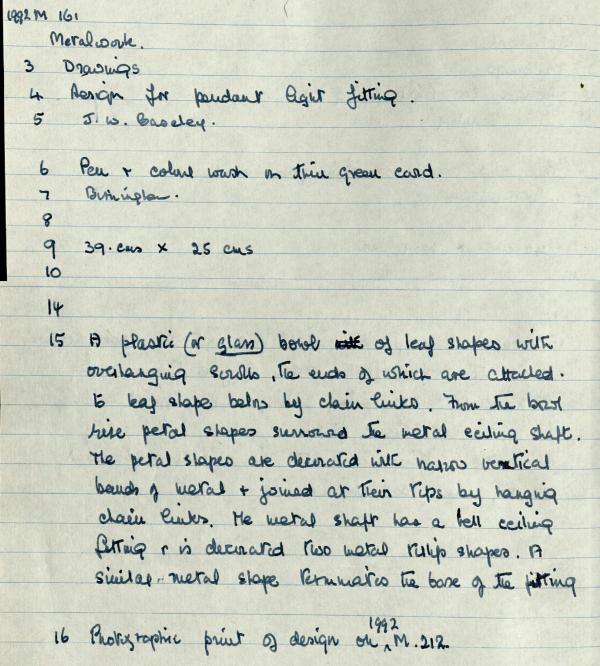 1992 M 161
Metalwork.
3 Drawings
4 Design for pendant light fitting.
5 J. W. Baseley.
6 Pen + colour wash on thin green card.
7 Birmingham.
8
9 39. cms x 25 cms
10
14
15 A plastic (or glass) bowl of leaf shapes with
overhanging scrolls, the ends of which are attached.
to leaf shape below by chain links. From the bowl
rise petal shapes surround the metal ceiling shaft.
The petal shapes are decorated with narrow vertical
bands of metal + joined at their tips by hanging
chain links. The metal shaft has a bell ceiling
fitting + is decorated two metal tulip shapes. A
similar metal shape terminates the base of the fitting
16 Photographic print of design on 1992 M.212.